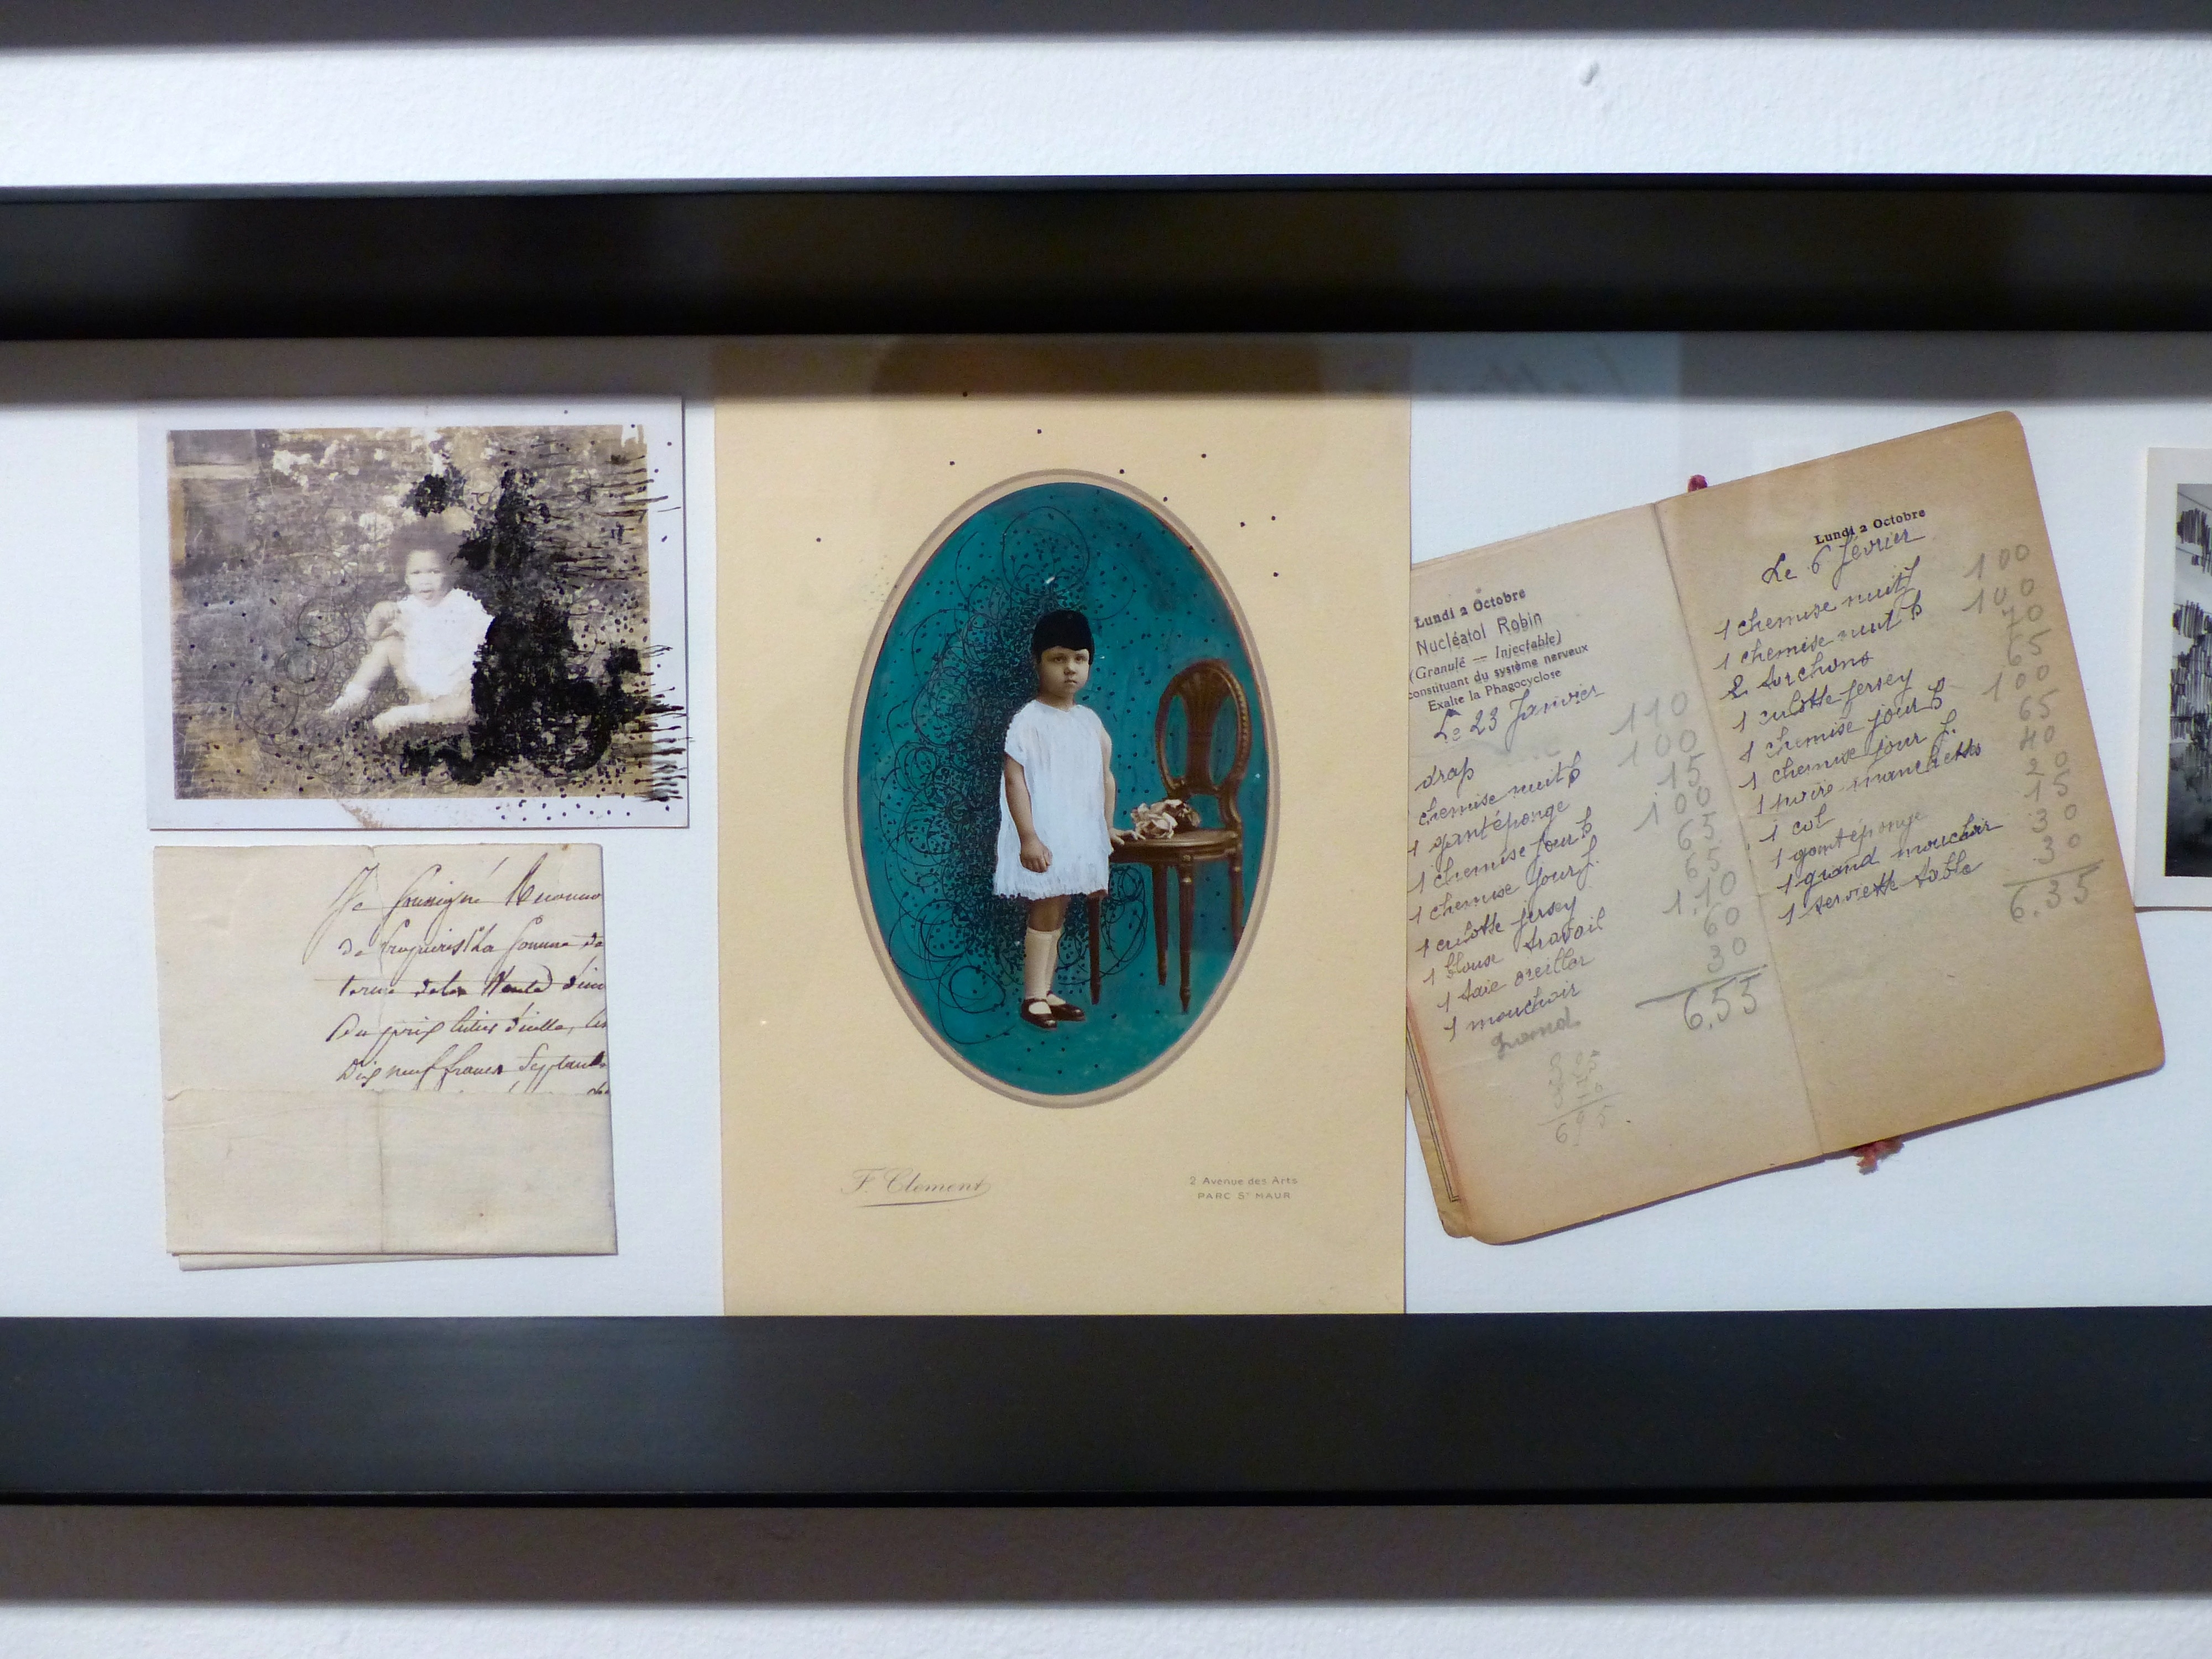 Je soussigné
de la somme de
terme de la Vente d'un
Du prix
Dix neuf francs Septante
F. Clement
2 Avenue des Arts
PARC St MAUR
Lundi 2 Octobre
Nucléatol Robin
(Granulé — Injectable)
constituant du système nerveux
Exalte la Phagocyclose
Le 23 Janvier
drap 110
chemise nuit b 100
1 gant éponge 15
1 chemise jour b 100
1 chemise jour f. 65
1 culotte jersey 65
1 blouse travail 1.10
1 taie oreiller 60
1 mouchoir 30
grand
6.55
Lundi 2 Octobre
Le 6 février
1 chemise nuit f 100
1 chemise nuit b 100
2 torchons 70
1 culotte jersey 65
1 chemise jour b 100
1 chemise jour f. 65
1 paire manchettes 40
1 col 20
1 gant éponge 15
1 grand mouchoir 30
1 serviette table 30
6.35